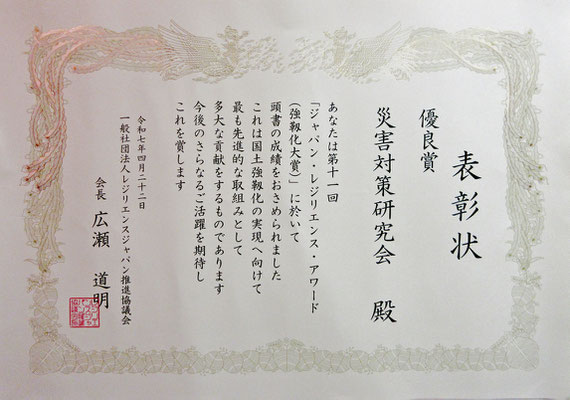 表彰状
優良賞
災害対策研究会 殿
あなたは第十一回
「ジャパン・レジリエンス・アワード
(強靱化大賞)」に於いて
頭書の成績をおさめられました
これは国土強靱化の実現へ向けて
最も先進的な取組みとして
多大な貢献をするものであります
今後のさらなるご活躍を期待し
これを賞します
令和七年四月二十二日
一般社団法人レジリエンスジャパン推進協議会
会長 広瀬 道明